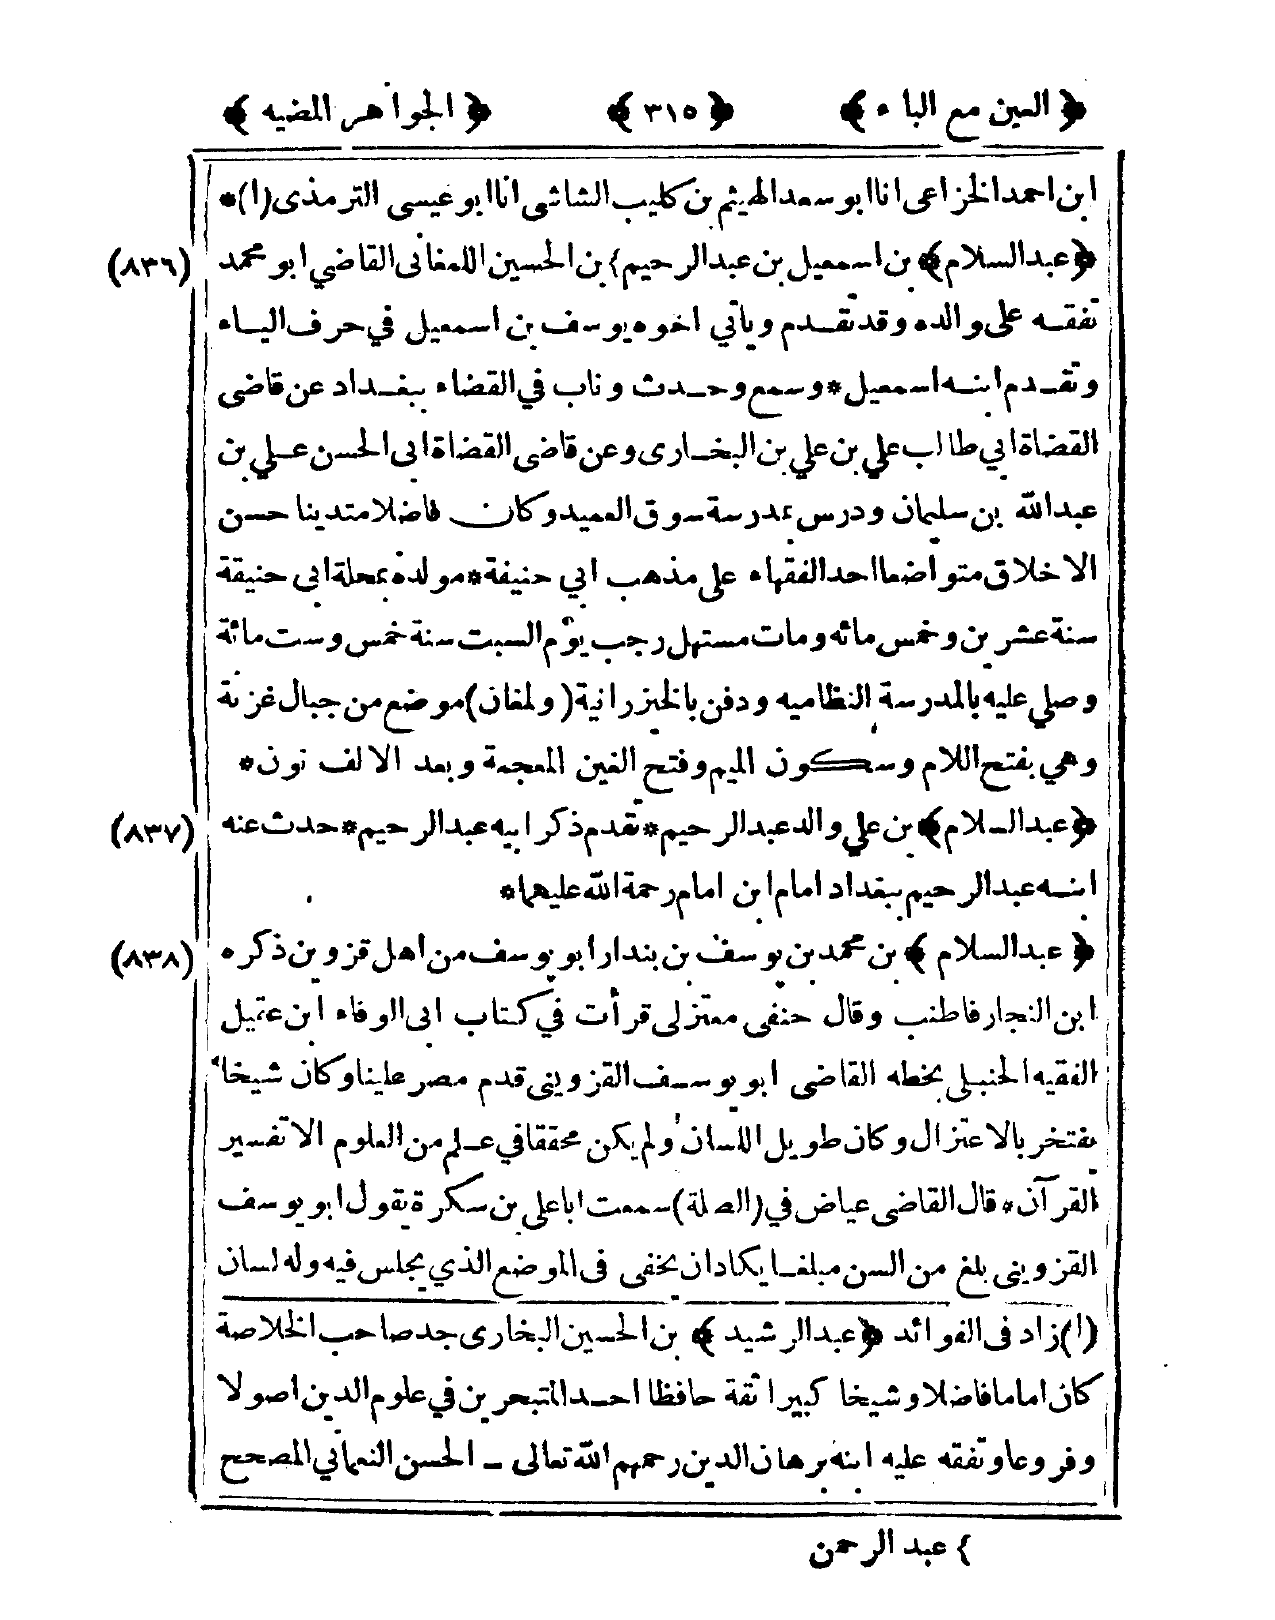 ﴿العين مع الباء﴾ ﴿٣١٥﴾ ﴿الجواهر المضيه﴾
ابن احمد الخزاعى انا ابو سعد الهيثم بن كليب الشاشى انا ابو عيسى الترمذى (١)*
(٨٣٦) ﴿عبد السلام﴾ بن اسمعيل بن عبد الرحيم} بن الحسين اللمغانى القاضي ابو محمد
تفقه على والده وقد تقدم ويأتي اخوه يوسف بن اسمعيل في حرف الياء
وتقدم ابنه اسمعيل * وسمع وحدث وناب في القضاء ببغداد عن قاضى
القضاة ابي طالب علي بن علي بن البخارى وعن قاضى القضاة ابى الحسن علي بن
عبد الله بن سليمان ودرس بمدرسة سوق العميد وكان فاضلا متدينا حسن
الاخلاق متواضعا احد الفقهاء على مذهب ابي حنيفة * مولده بمحلة ابى حنيفة
سنة عشرين وخمس مائه ومات مستهل رجب يوم السبت سنة خمس وست مائة
وصلي عليه بالمدرسة النظاميه ودفن بالخيزرانية (ولمغان) موضع من جبال غزنة
وهي بفتح اللام وسكون الميم وفتح الغين المعجمة وبعد الالف نون *
(٨٣٧) ﴿عبد السلام﴾ بن علي والد عبد الرحيم * تقدم ذكر ابيه عبد الرحيم * حدث عنه
ابنه عبد الرحيم ببغداد امام ابن امام رحمة الله عليهما *
(٨٣٨) ﴿عبد السلام﴾ بن محمد بن يوسف بن بندار ابو يوسف من اهل قزوين ذكره
ابن النجار فاطنب وقال حنفى معتزلى قرأت في كتاب ابى الوفاء ابن عقيل
الفقيه الحنبلي بخطه القاضى ابو يوسف القزوينى قدم مصر علينا وكان شيخا
يفتخر بالاعتزال وكان طويل اللسان ولم يكن محققا في علم من العلوم الا تفسير
القرآن * قال القاضى عياض في (الصلة) سمعت ابا على بن سكرة يقول ابو يوسف
القزوينى بلغ من السن مبلغا يكاد ان يخفى فى الموضع الذي يجلس فيه وله لسان
(١) زاد فى الفوائد ﴿عبد الرشيد﴾ بن الحسين البخارى جد صاحب الخلاصة
كان اماما فاضلا وشيخا كبيرا ثقة حافظا احد المتبحرين في علوم الدين اصولا
وفروعا وتفقه عليه ابنه برهان الدين رحمهم الله تعالى – الحسن النعماني المصحح
} عبد الرحمن